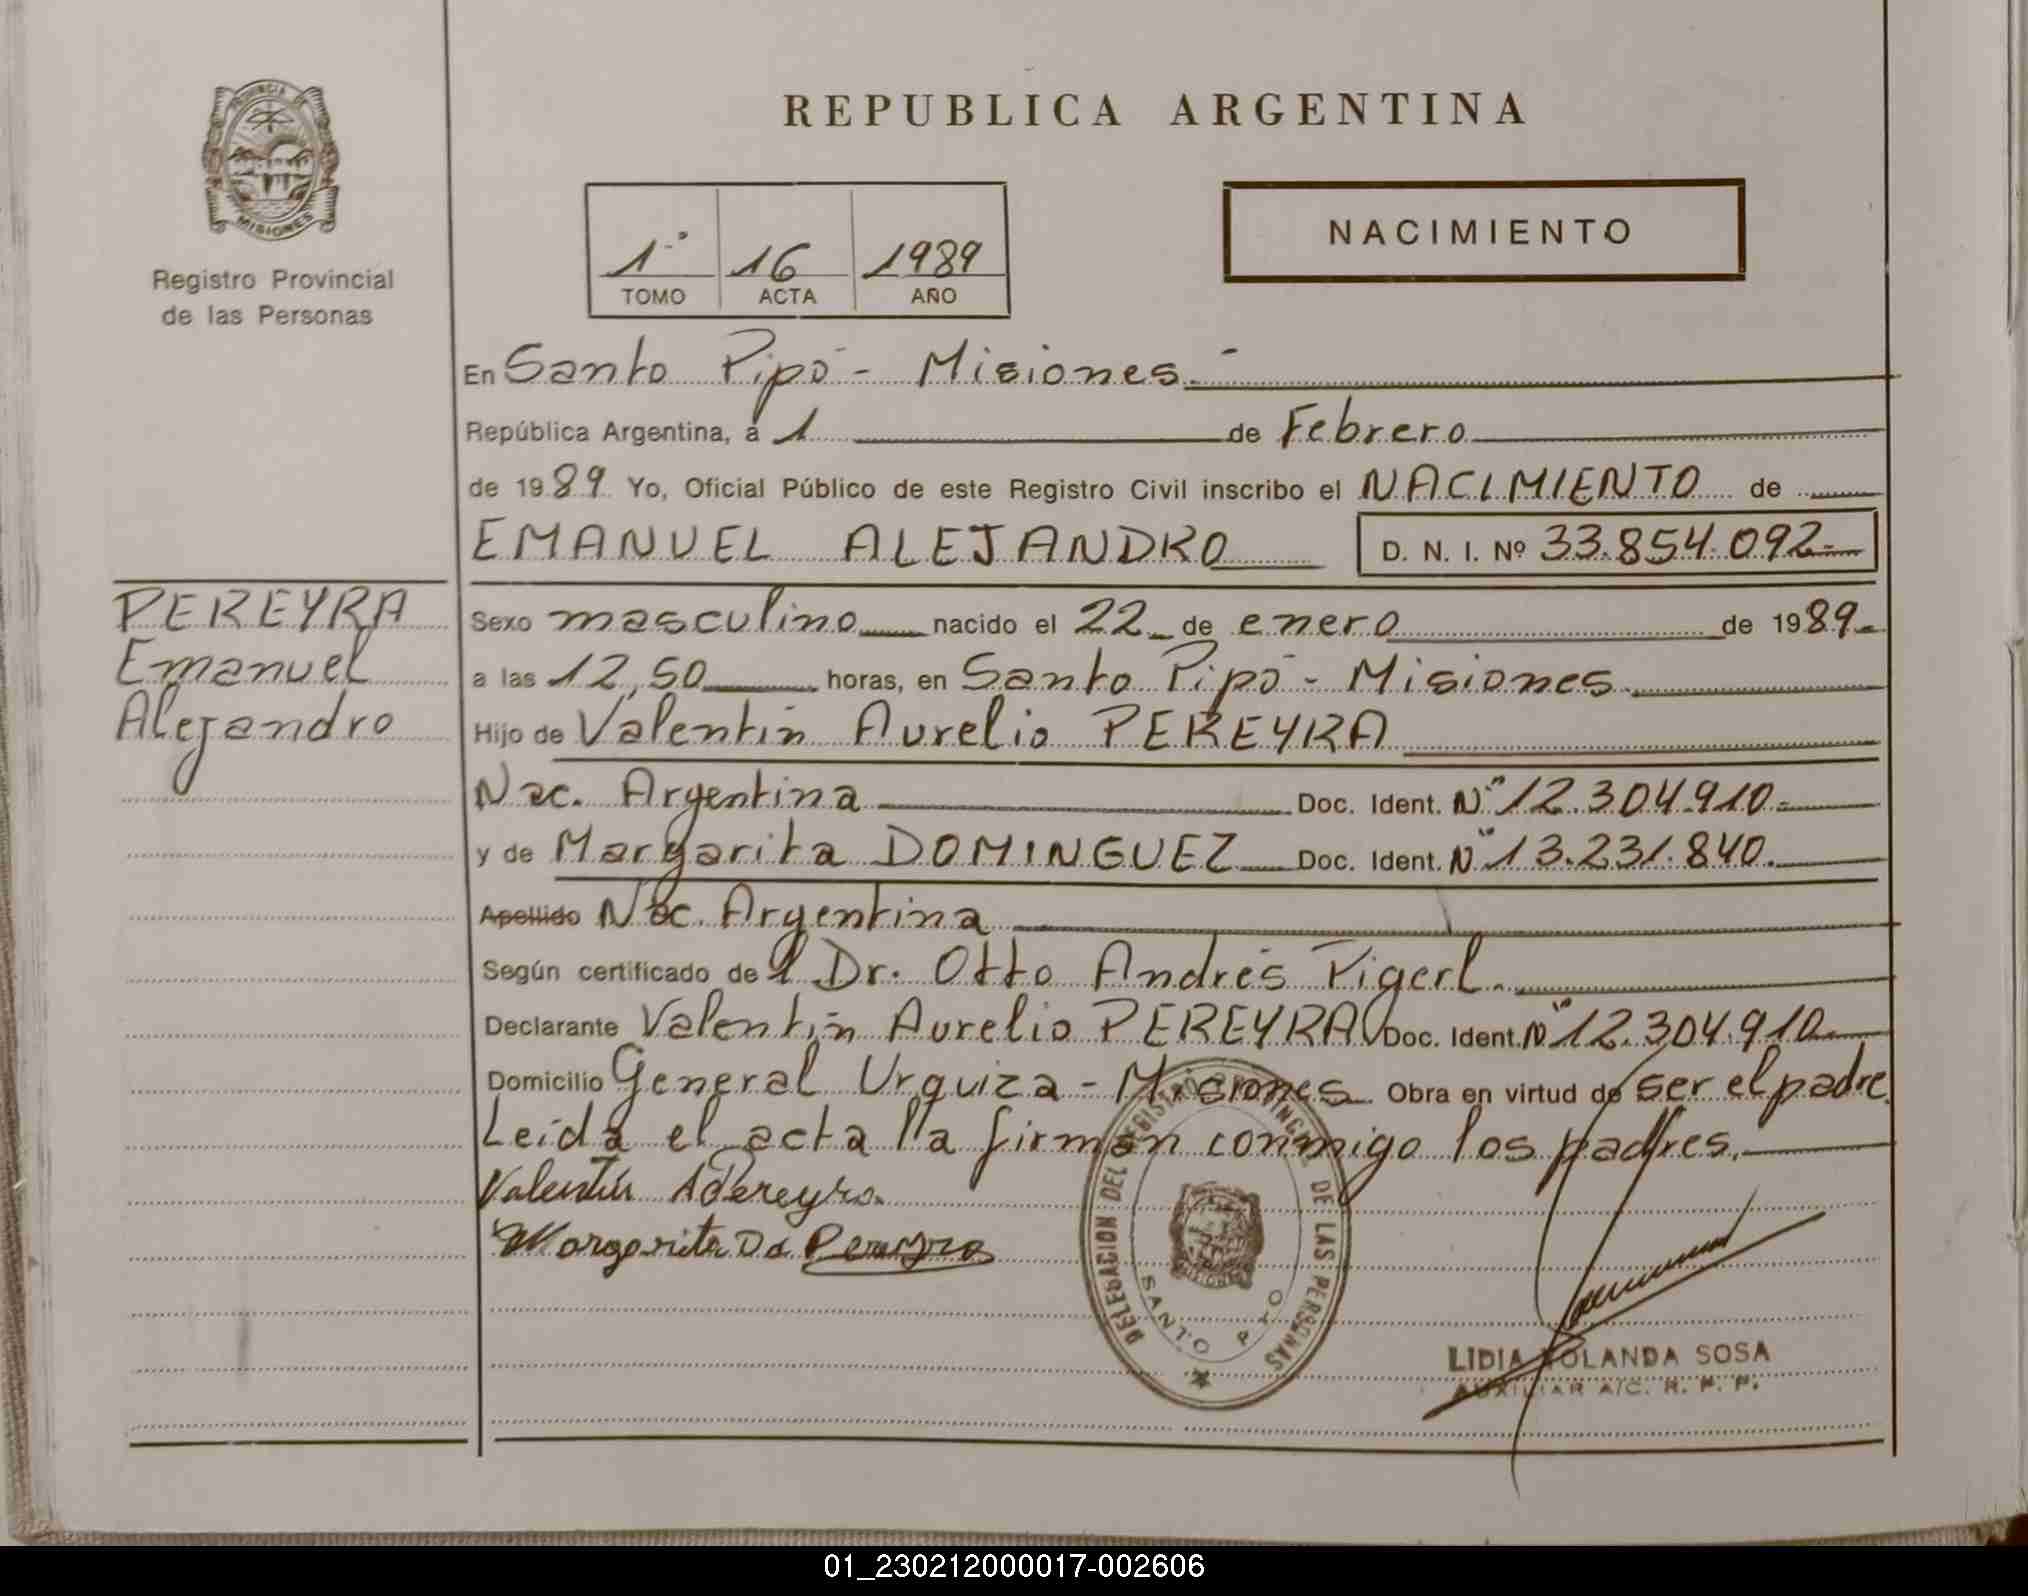 PROVINCIA DE
MISIONES
Registro Provincial
de las Personas
REPUBLICA ARGENTINA
1° 16 1989
TOMO ACTA AÑO
NACIMIENTO
En Santo Pipó - Misiones.
República Argentina, a 1 de Febrero
de 1989 Yo, Oficial Público de este Registro Civil inscribo el NACIMIENTO de
EMANUEL ALEJANDRO D. N. I. Nº 33.854.092-
PEREYRA
Emanuel
Alejandro
Sexo masculino nacido el 22 de enero de 1989.
a las 12,50 horas, en Santo Pipó - Misiones
Hijo de Valentín Aurelio PEREYRA
Nac. Argentina Doc. Ident. Nº 12.304.910-
y de Margarita DOMINGUEZ Doc. Ident. Nº 13.231.840.
Apellido Nac. Argentina
Según certificado del Dr. Otto Andrés Pigerl.
Declarante Valentín Aurelio PEREYRA Doc. Ident. Nº 12.304.910
Domicilio General Urquiza - Misiones Obra en virtud de ser el padre
Leída el acta la firman conmigo los padres.
Valentín A Pereyra
Margarita D d Pereyra
DELEGACION DEL REGISTRO PROVINCIAL DE LAS PERSONAS
SANTO PIPO
MISIONES
LIDIA YOLANDA SOSA
AUXILIAR A/C. R. P. P.
01_230212000017-002606